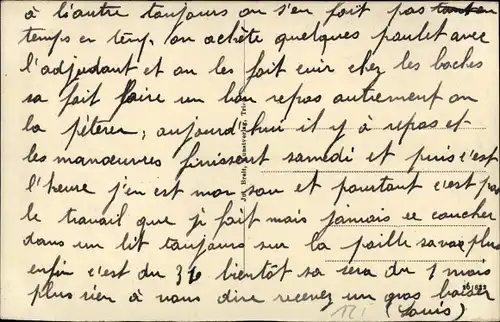 à l'autre toujours on s'en fait pas
temps en temp, on achète quelques poulet avec
l'adjudant et on les fait cuir chez les boches
sa fait faire un bon repas autrement on
la pèterer, aujourd'hui il y à repos et
les manœuvres finissent samedi et puis c'est
l'heure j'en est mar sou et pourtant c'est pas
le travail que je fait mais jamais ce coucher
dans un lit toujours sur la paille sava plus
enfin c'est du 36 bientôt sa sera du 1 mois
plus rien à vous dire recevez un gros baiser
(Louis)